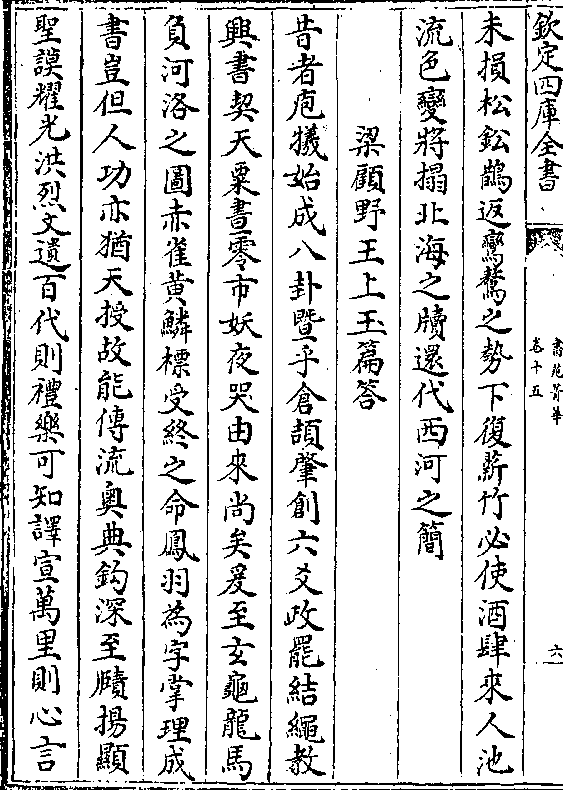 欽定四庫全書
書苑菁華
卷十五
六
未損松鈆鵲返鸞驁之勢下復薪竹必使酒肆來人池
流色變將搨北海之牘還代西河之簡
梁顧野王上玉篇答
昔者庖犧始成八卦暨乎倉頡肇創六爻政罷結繩教
興書契天粟晝零市妖夜哭由來尚矣爰至玄龜龍馬
負河洛之圖赤雀黃鱗標受終之命鳳羽為字掌理成
書豈但人功亦猶天授故能傳流奧典鈎深至賾揚顯
聖謨耀光洪烈文遺百代則禮樂可知譯宣萬里則心言